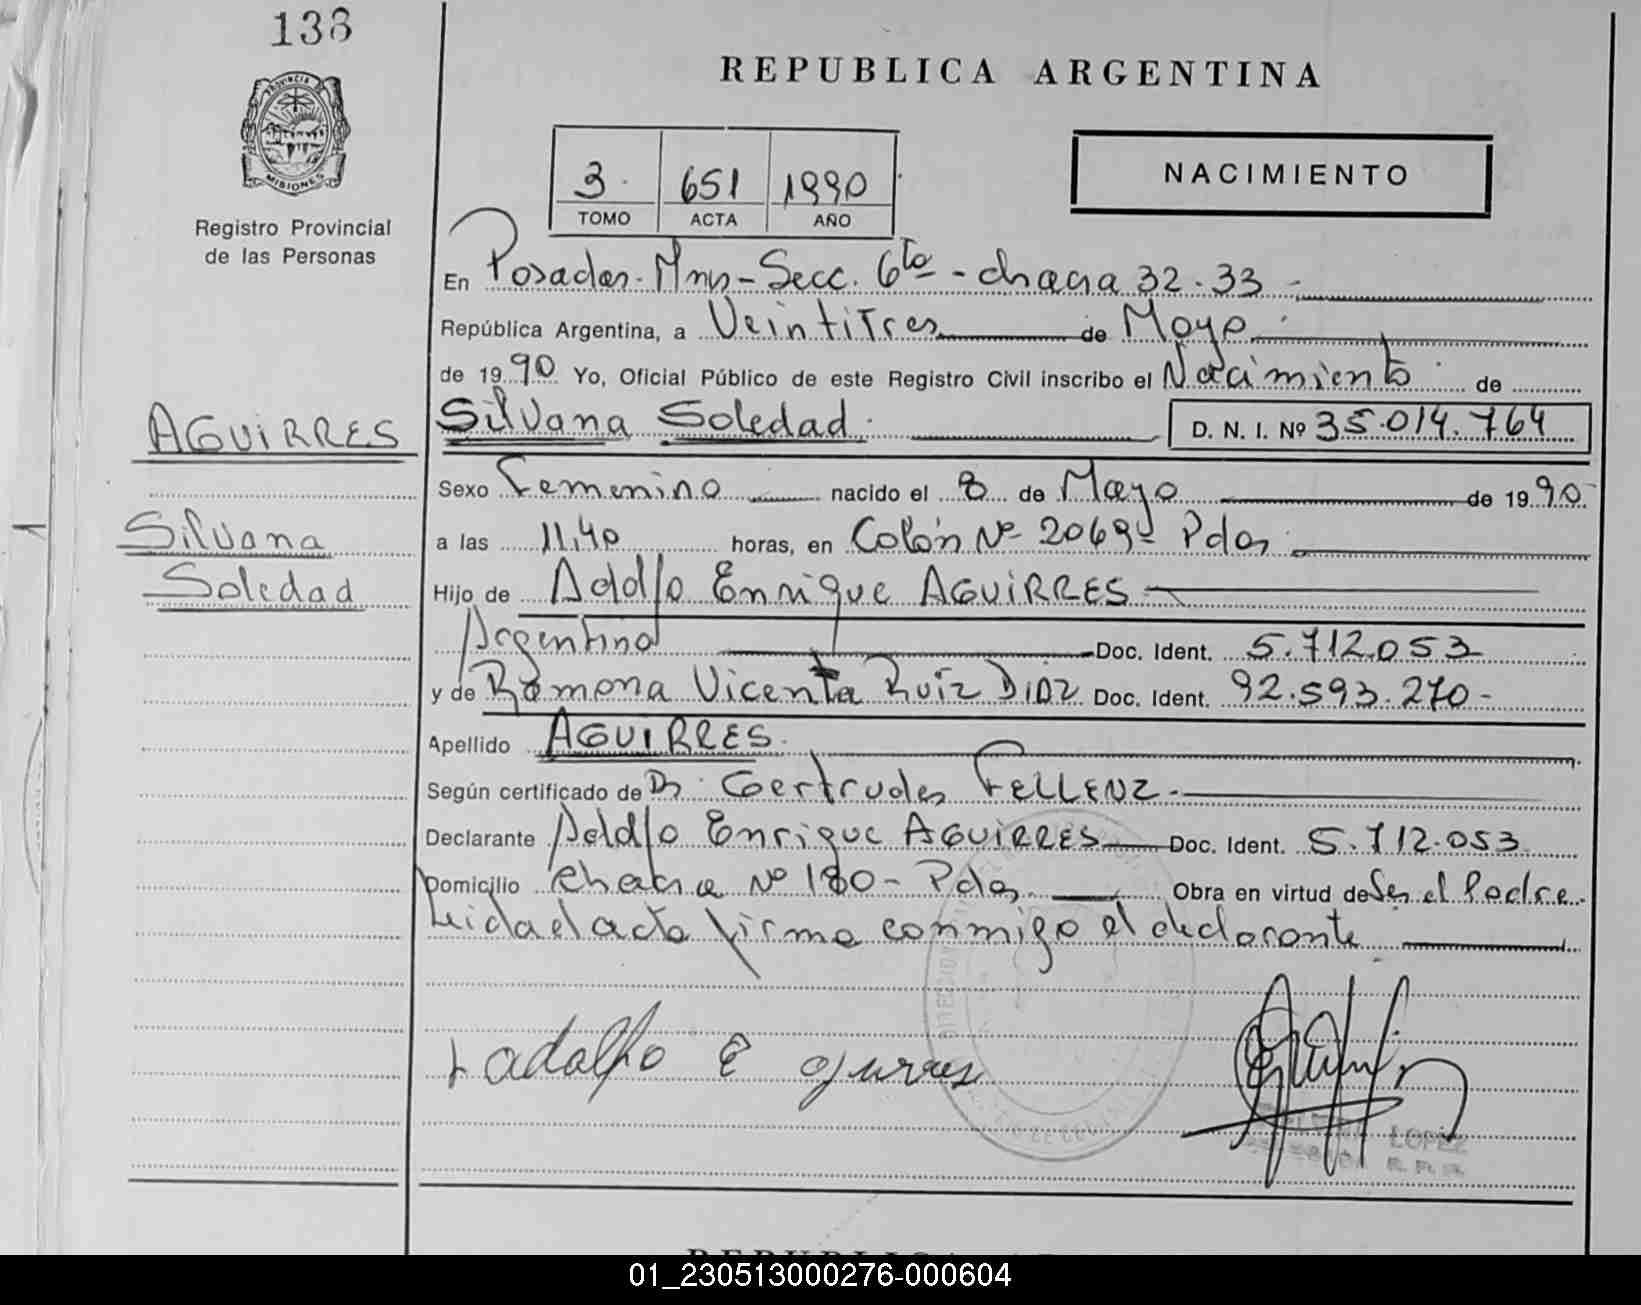 138
REPUBLICA ARGENTINA
PROVINCIA
MISIONES
Registro Provincial
de las Personas
3 651 1990
TOMO ACTA AÑO
NACIMIENTO
En Posadas-Mnes-Secc. 6ta - chacra 32-33 -
República Argentina, a Veintitres de Mayo
de 1990 Yo, Oficial Público de este Registro Civil inscribo el Nacimiento de
AGUIRRES
Silvana Soledad. D. N. I. Nº 35.014.764
Sexo Femenino nacido el 8 de Mayo de 1990
Silvana
a las 11,40 horas, en Colón Nº 2069- Pdas
Soledad
Hijo de Adolfo Enrique AGUIRRES
Argentino Doc. Ident. 5.712.053
y de Ramona Vicenta Ruíz Diaz Doc. Ident. 92.593.270-
Apellido AGUIRRES.
Según certificado de Dr. Gertrudes FELLENZ.
Declarante Adolfo Enrique AGUIRRES Doc. Ident. 5.712.053
Domicilio chacra Nº 180- Pdas. Obra en virtud de Ser el Padre.
Leida el acta firma conmigo el declarante
adolfo E aguirres
LOPEZ
01_230513000276-000604